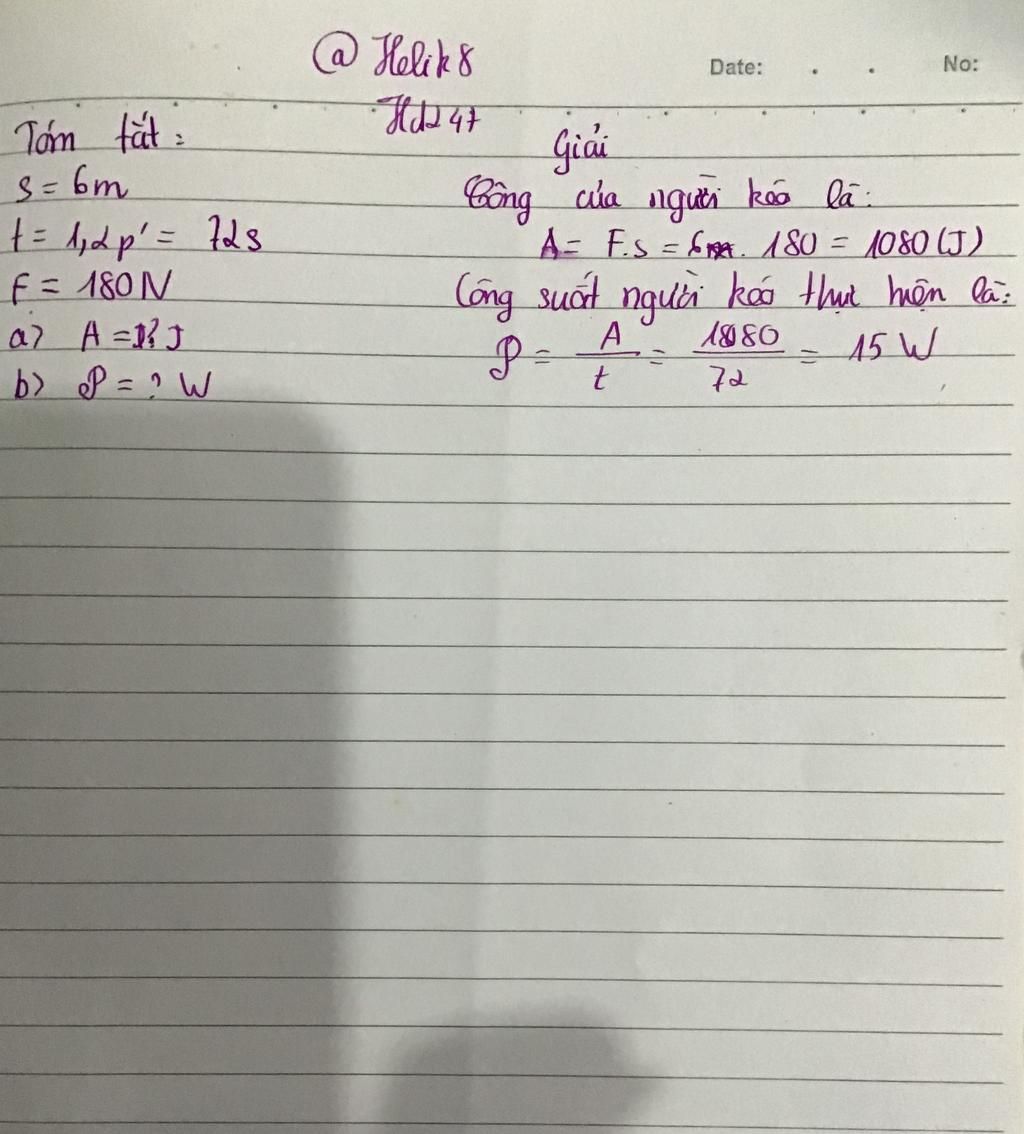 @ Helik8
Date: . . No:
Hd247
Tóm tắt:
s = 6m
t = 1,2p' = 72s
F = 180N
a) A = ? J
b) P = ? W
Giải
Công của người kéo là:
A = F.s = 6. 180 = 1080 (J)
Công suất người kéo thực hiện là:
P = A/t = 1080/72 = 15 W